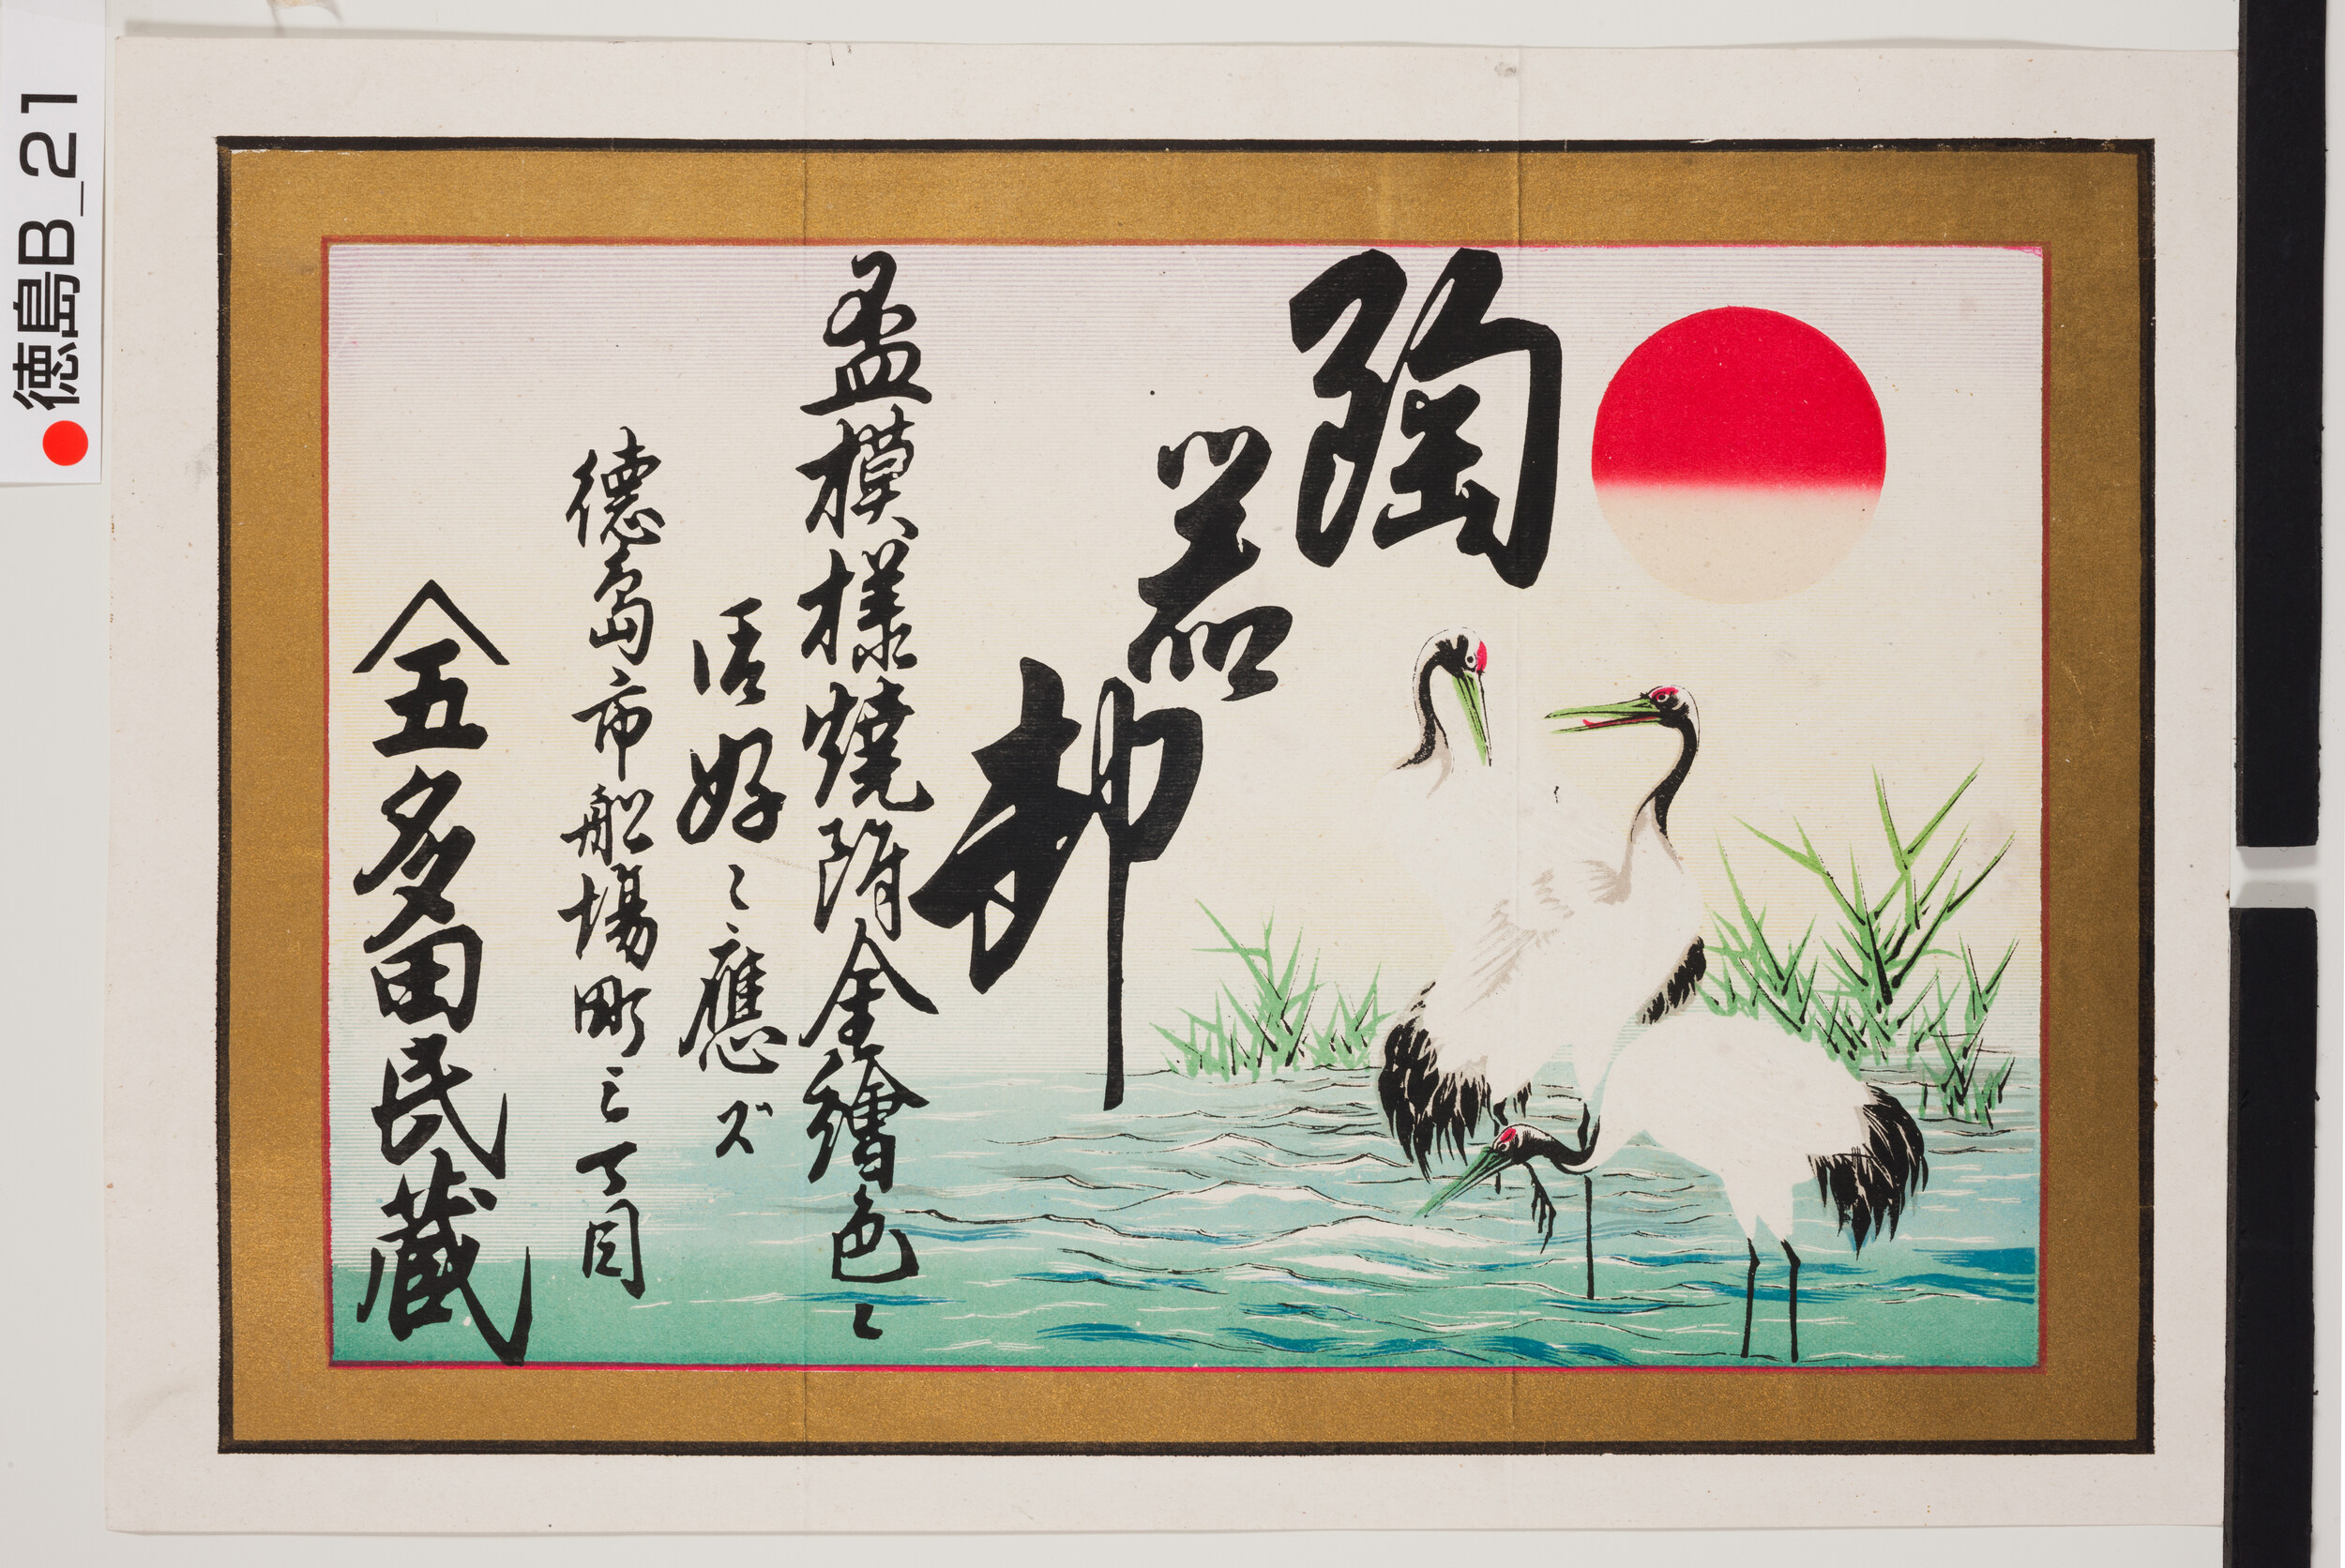 陶器卸
盃模様燒附金繪色々
好ニ應ズ
德島市船場町三丁目
五 多田民藏
徳島B_21